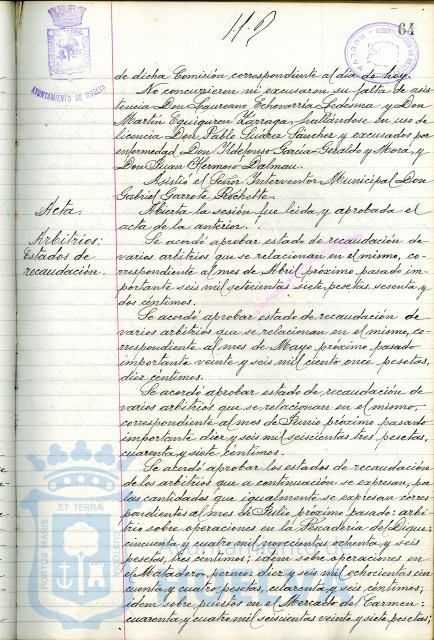 119
64
AYUNTAMIENTO DE HUELVA
de dicha Comisión correspondiente al día de hoy.
No concurrieron ni excusaron su falta de asis-
tencia Don Laureano Echevarría Ledesma y Don
Martín Eguiguren Azarraga, hallándose en uso de
licencia Don Pablo Suárez Sánchez y excusados por
enfermedad Don Ildefonso García-Geraldo y Mora, y
Don Juan Hermoso Dalmau.
Asistió el Señor Interventor Municipal Don
Gabriel Garrote Rochette.
Acta.
Abierta la sesión fue leida, y aprobada el
acta de la anterior.
Arbitrios:
Estados de
recaudación.
Se acordó aprobar estado de recaudación de
varios arbitrios que se relacionan en el mismo, co-
rrespondiente al mes de Abril próximo pasado im-
portante seis mil setecientas siete pesetas, sesenta y
dos céntimos.
Se acordó aprobar estado de recaudación de
varios arbitrios que se relacionan en el mismo, co-
rrespondiente al mes de Mayo próximo pasado
importante veinte y seis mil ciento once pesetas,
diez céntimos.
Se acordó aprobar estado de recaudación de
varios arbitrios que se relacionan en el mismo,
correspondiente al mes de Junio próximo pasado
importante diez y seis mil seiscientas tres pesetas,
cuarenta y siete céntimos.
Se acordó aprobar los estados de recaudación
de los arbitrios que a continuación se expresan, por
las cantidades que igualmente se expresan corres-
pondientes al mes de Julio próximo pasado: arbi-
trio sobre operaciones en la Pescadería del Dique;
cincuenta y cuatro mil novecientas ochenta y seis
pesetas, tres céntimos; idem sobre operaciones en
el Matadero, perneo, diez y seis mil ochocientas cin-
cuenta y cuatro pesetas, cuarenta y seis céntimos;
idem sobre puestos en el Mercado del Carmen:
cuarenta y cuatro mil seiscientas veinte y siete pesetas;
PORTUS MARIS ET TERRÆ CUSTODIA
Ayuntamiento de